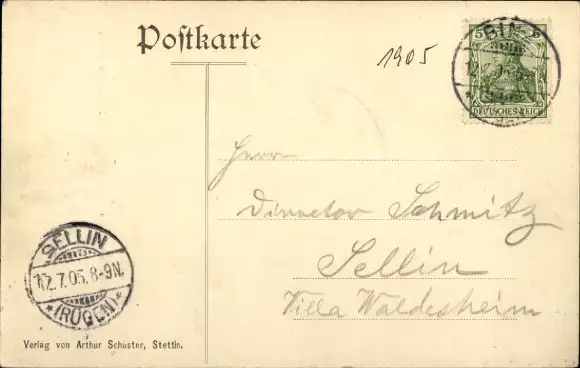 Postkarte
1905
5
BIN
DEUTSCHES REICH
Herrn
Director Schmitz
Sellin
Villa Waldesheim
SELLIN
12.7.05.8-9N.
*(RÜGEN)*
Verlag von Arthur Schuster, Stettin.